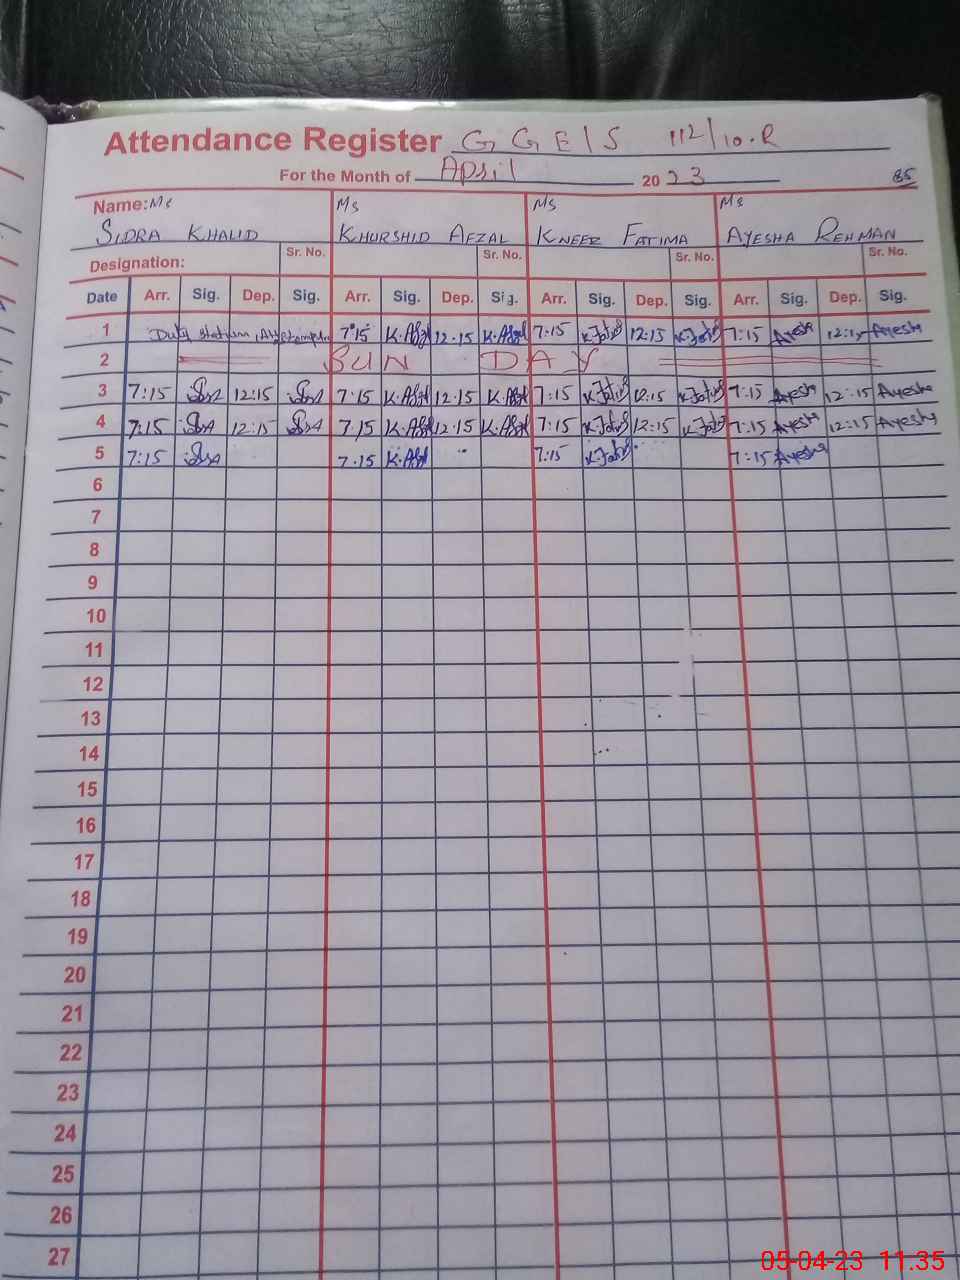 Attendance Register G G E/S 112/10.R
For the Month of April 2023 85
Name: Ms Ms Ms Ms
SIDRA KHALID KHURSHID AFZAL KNEEZ FATIMA AYESHA REHMAN
Designation: Sr. No. Sr. No. Sr. No. Sr. No.
Date Arr. Sig. Dep. Sig. Arr. Sig. Dep. Sig. Arr. Sig. Dep. Sig. Arr. Sig. Dep. Sig.
1 Duty 7:15 K.Afzl 12.15 K.Afzl 7:15 K.Fatima 12:15 K.Fatima 7:15 Ayesha 12:15 Ayesha
2 SUN DAY
3 7:15 12:15 7.15 K.Afzl 12.15 K.Afzl 7:15 K.Fatima 12:15 K.Fatima 7:15 Ayesha 12:15 Ayesha
4 7:15 12:15 7.15 K.Afzl 12.15 K.Afzl 7:15 K.Fatima 12:15 K.Fatima 7:15 Ayesha 12:15 Ayesha
5 7:15 7.15 K.Afzl 7:15 K.Fatima 7:15 Ayesha
6
7
8
9
10
11
12
13
14
15
16
17
18
19
20
21
22
23
24
25
26
27
05-04-23 11.35